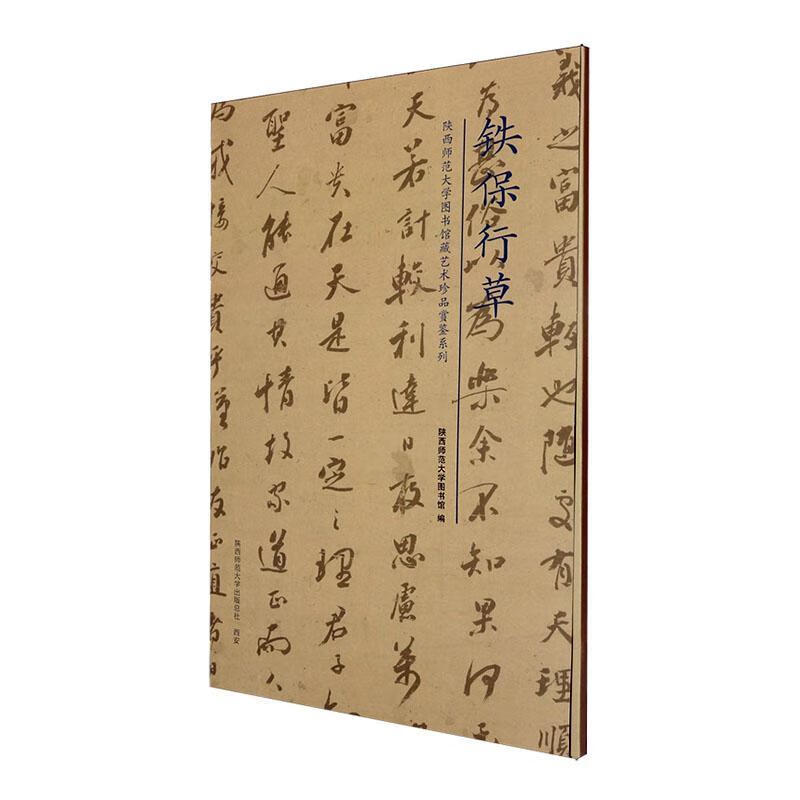 铁保行草
陕西师范大学图书馆藏艺术珍品赏鉴系列
陕西师范大学图书馆 编
義之富貴輕也随处有天理順
为
俗的为樂余不知果何
天若計較利達日夜思慮萬
富贵在天是皆一定之理君子
聖人能通其情故家道正而人
为戒接交貴乎堂治友正直者日
陕西师范大学出版总社 西安